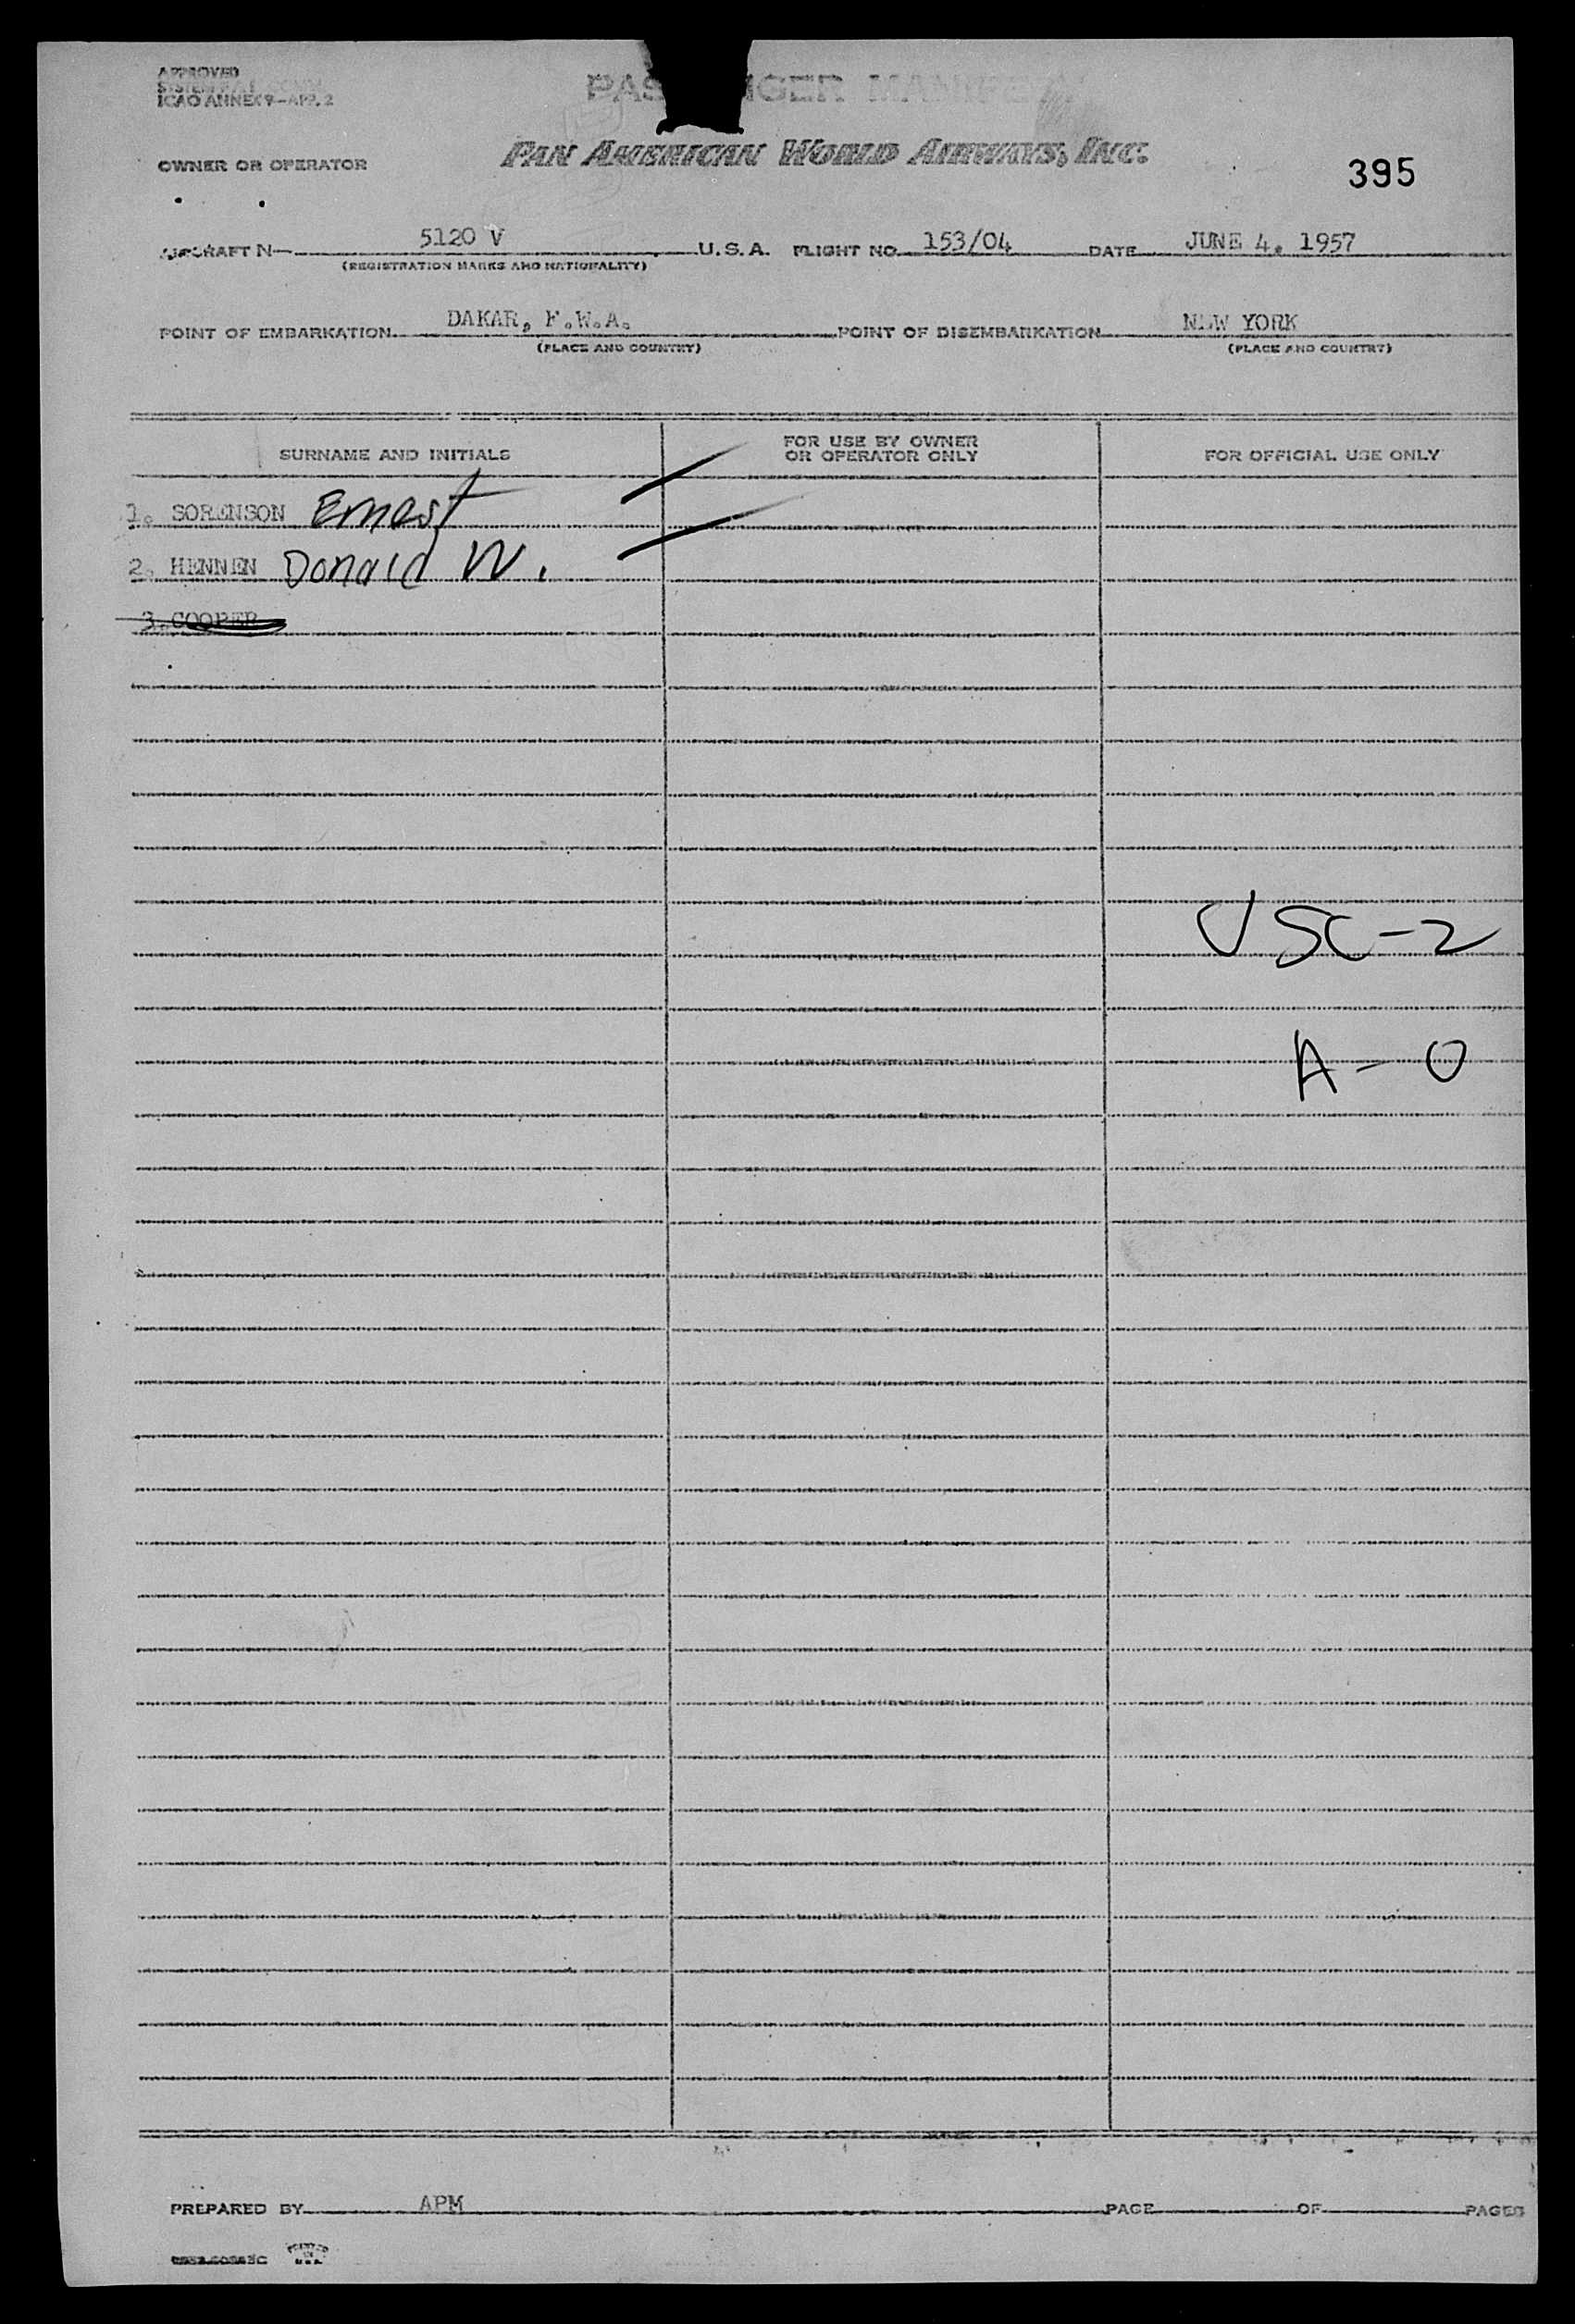 APPROVED
ICAO ANNEX 9-APP. 2
PAS NGER MANIFEST
OWNER OR OPERATOR
PAN AMERICAN WORLD AIRWAYS, INC.
395
AIRCRAFT N- 5120 V U.S.A. FLIGHT NO. 153/04 DATE JUNE 4, 1957
(REGISTRATION MARKS AND NATIONALITY)
POINT OF EMBARKATION DAKAR, F.W.A. POINT OF DISEMBARKATION NEW YORK
(PLACE AND COUNTRY) (PLACE AND COUNTRY)
SURNAME AND INITIALS FOR USE BY OWNER OR OPERATOR ONLY FOR OFFICIAL USE ONLY
1. SORENSON Ernest
2. HENNEN Donald W.
3. COOPER
USC-2
A- 0
PREPARED BY APM PAGE OF PAGES
PRINTED IN U.S.A.